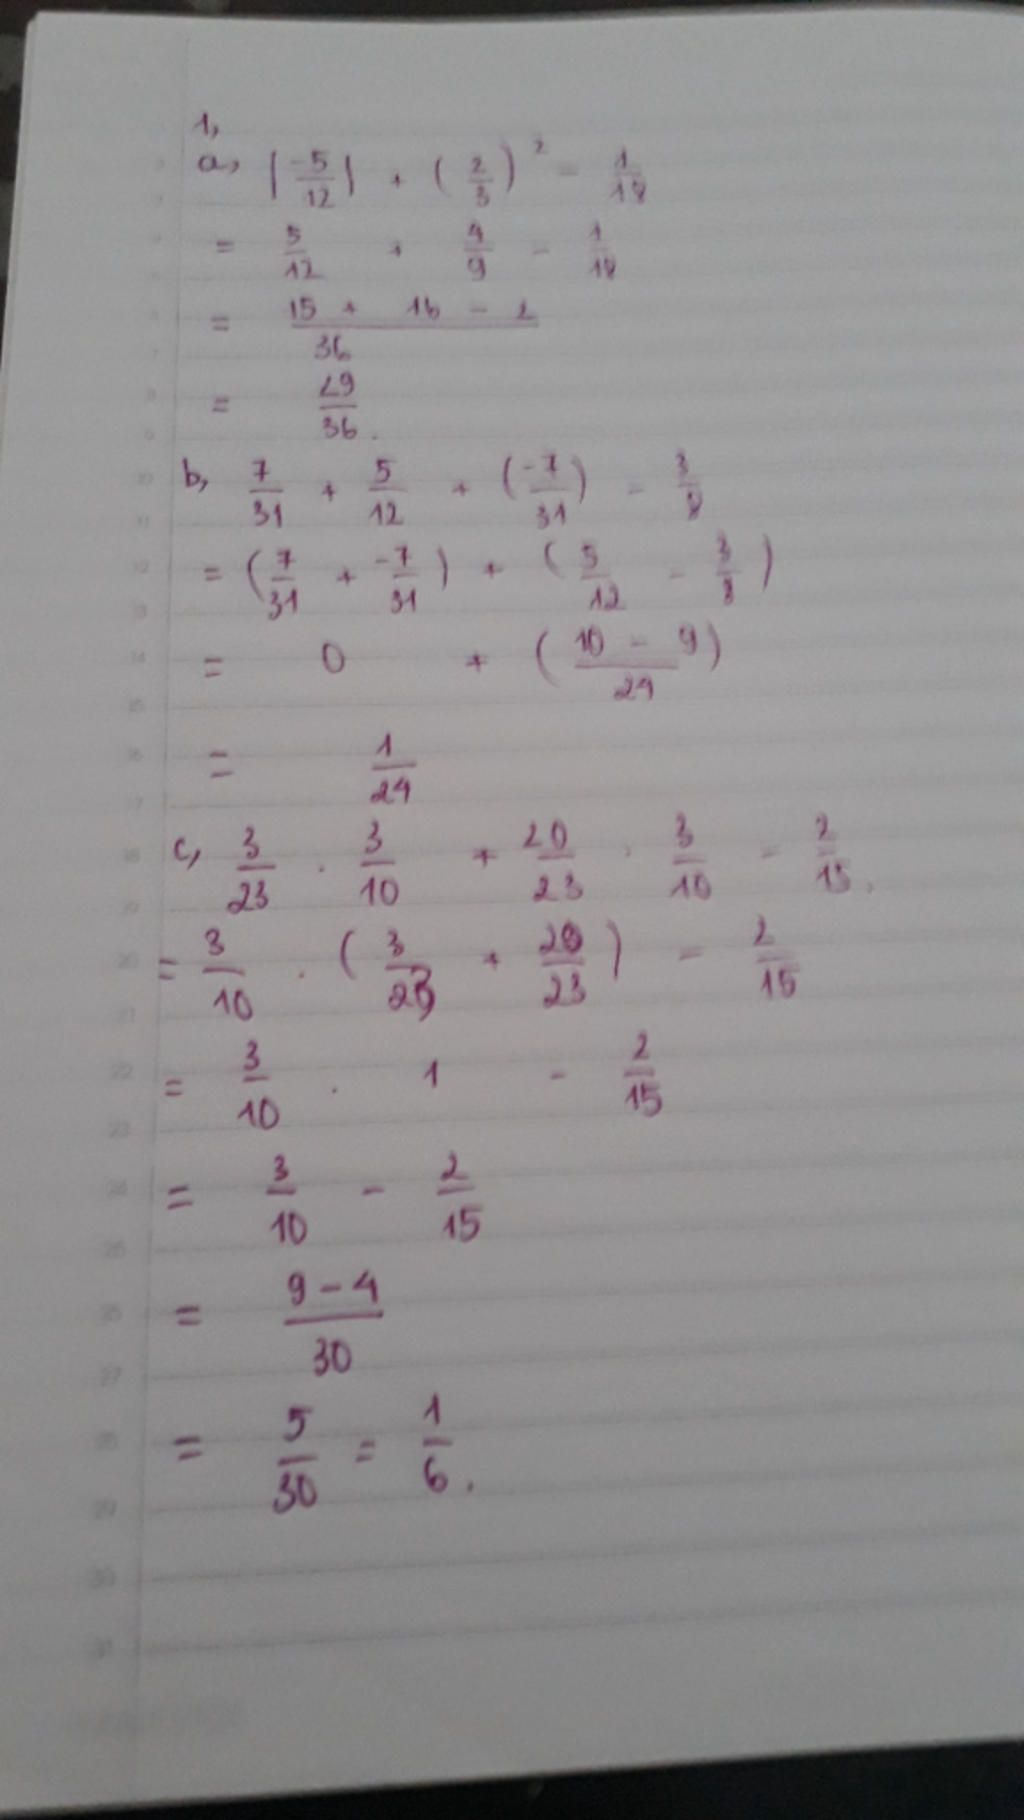 1,
a, |-5/12| + (2/3)² - 1/18
= 5/12 + 4/9 - 1/18
= (15 + 16 - 2)/36
= 29/36.
b, 7/31 + 5/12 + (-7/31) - 3/8
= (7/31 + -7/31) + (5/12 - 3/8)
= 0 + ((10 - 9)/24)
= 1/24
c, 3/23 . 3/10 + 20/23 . 3/10 - 2/15.
= 3/10 . (3/23 + 20/23) - 2/15
= 3/10 . 1 - 2/15
= 3/10 - 2/15
= (9 - 4)/30
= 5/30 = 1/6.